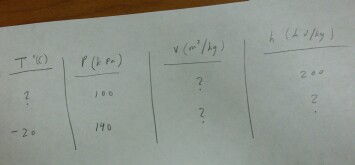 T °(C) P (kPa) v (m³/kg) h (kJ/kg)
? 100 ? 200
-20 140 ? ?